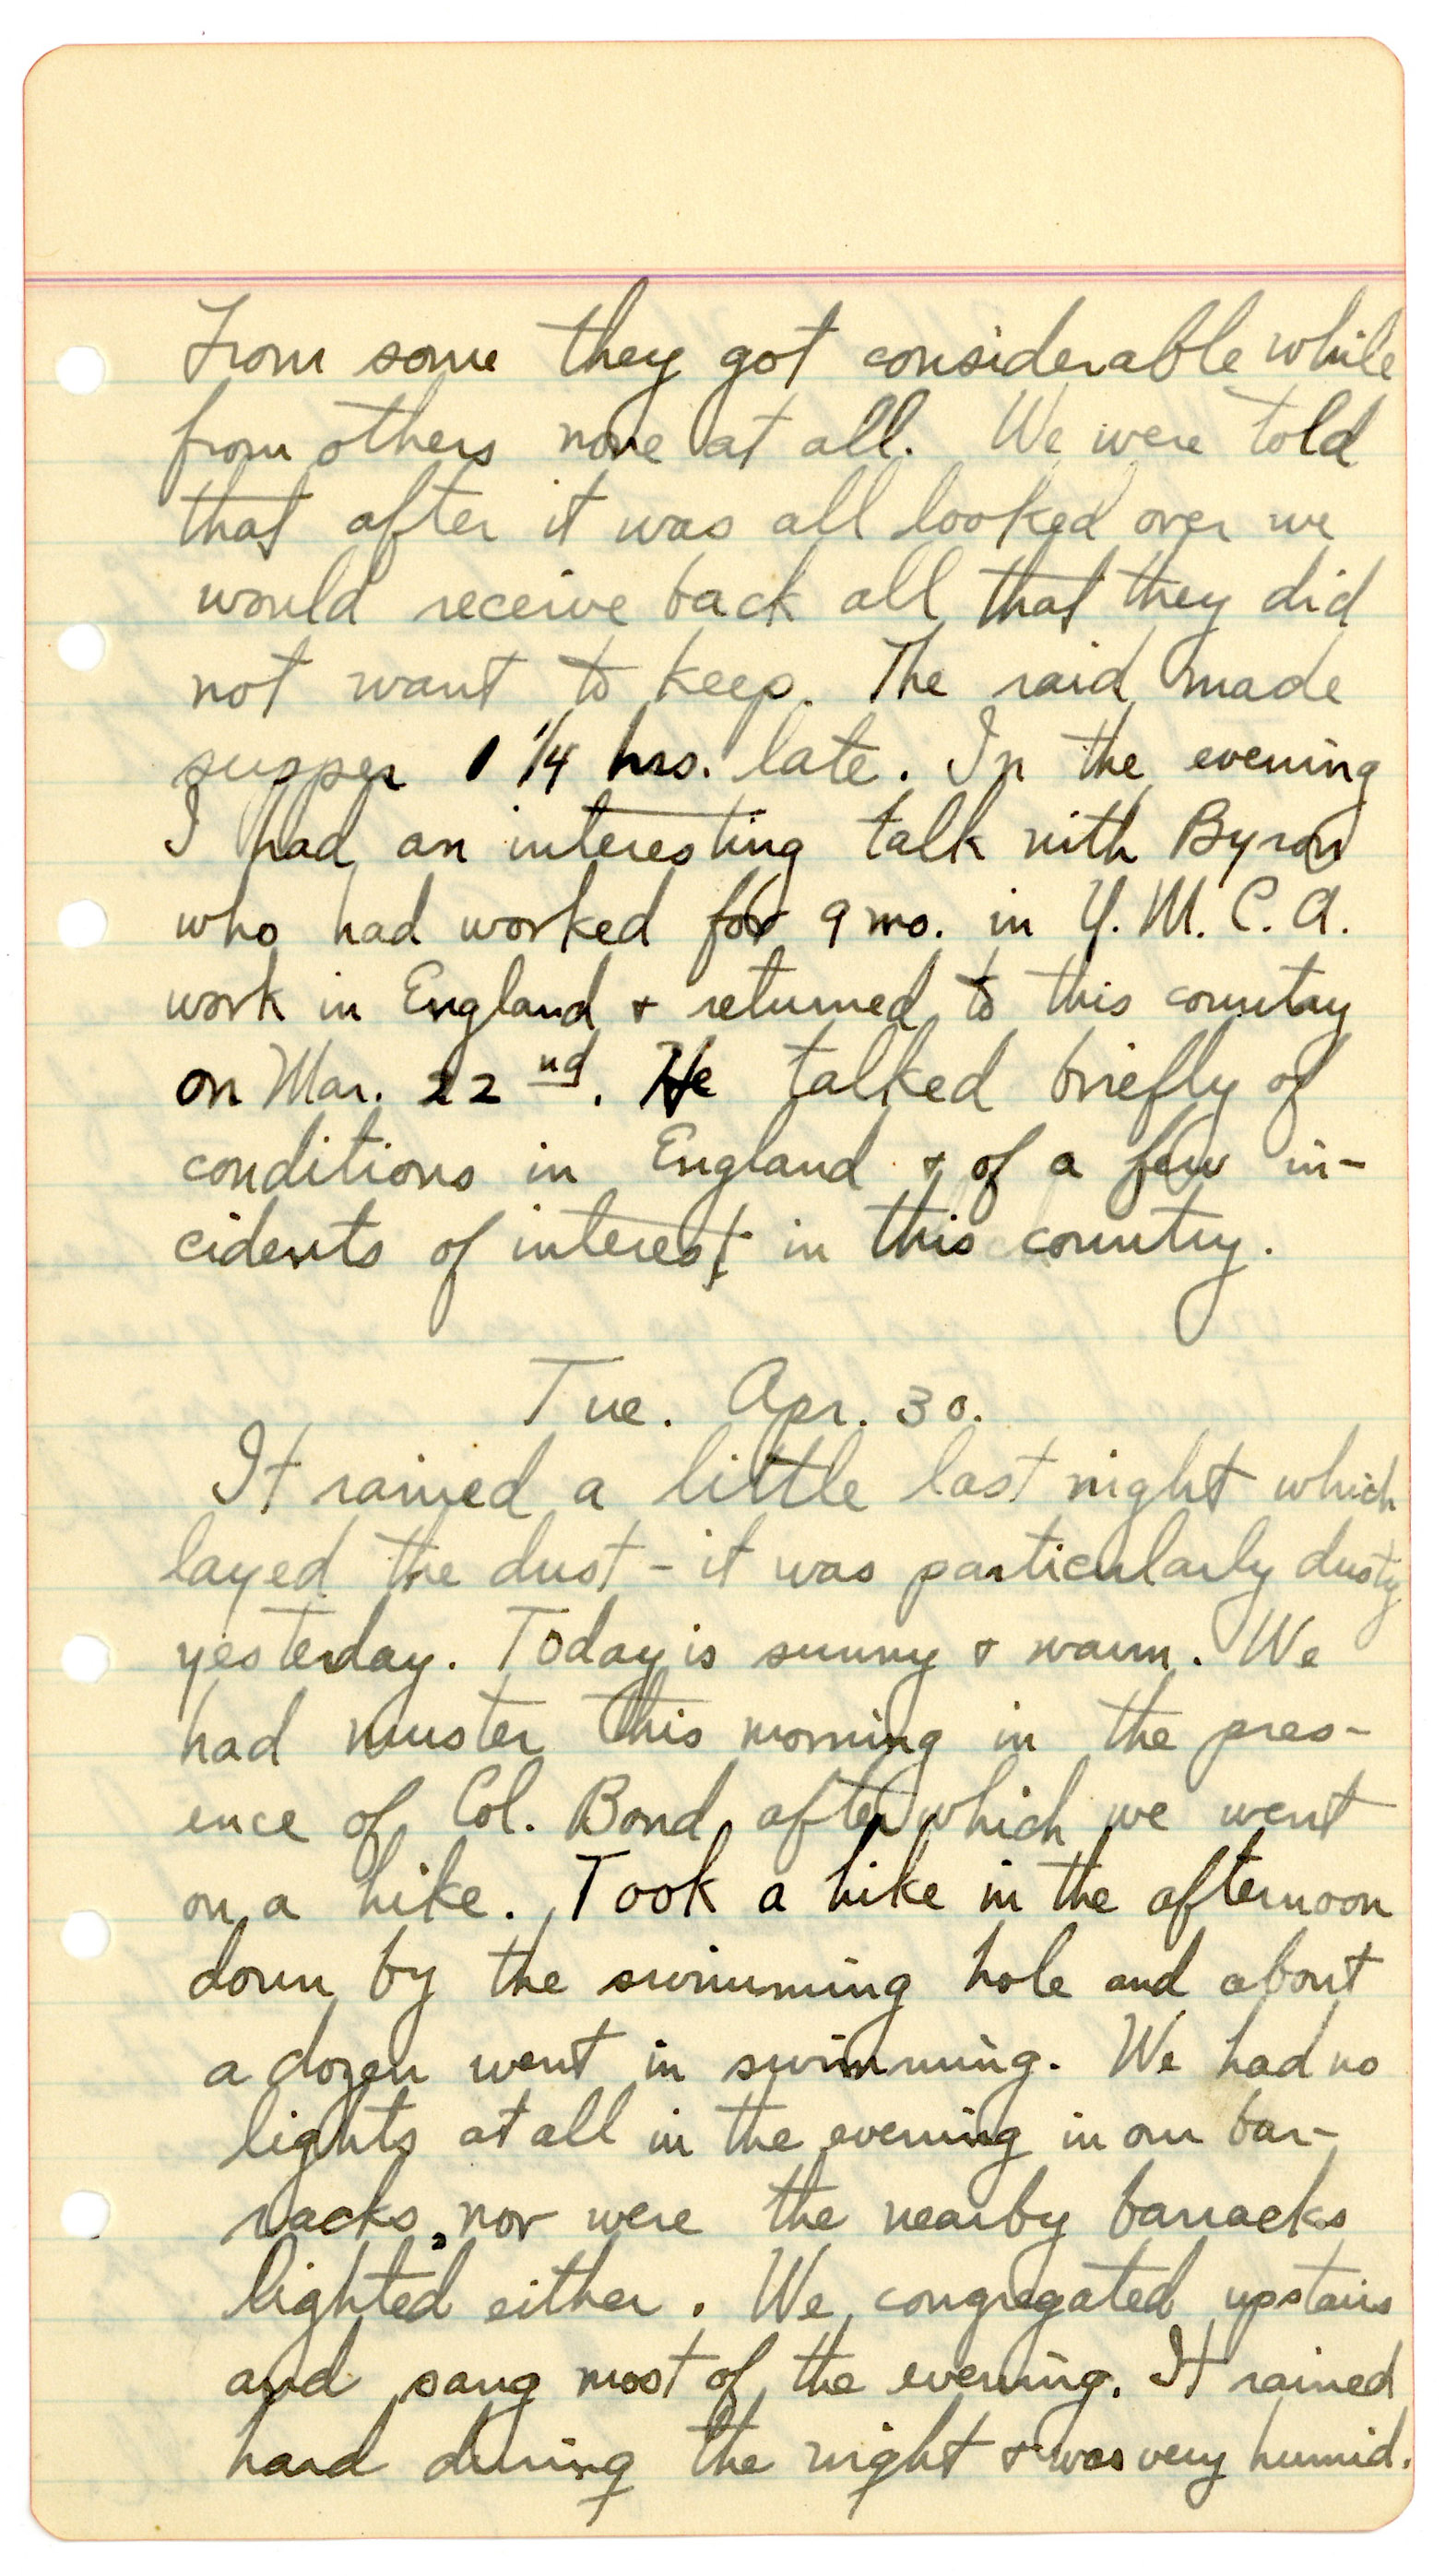 From some they got considerable while
from others none at all. We were told
that after it was all looked over we
would receive back all that they did
not want to keep. The raid made
supper 1 1/4 hrs. late. In the evening
I had an interesting talk with Byron
who had worked for 9 mo. in Y.M.C.A.
work in England + returned to this country
on Mar. 22nd. He talked briefly of
conditions in England + of a few in-
cidents of interest in this country.
Tue. Apr. 30.
It rained a little last night which
layed the dust - it was particularly dusty
yesterday. Today is sunny + warm. We
had muster this morning in the pres-
ence of Col. Bond after which we went
on a hike. Took a hike in the afternoon
down by the swimming hole and about
a dozen went in swimming. We had no
lights at all in the evening in our bar-
racks, nor were the nearby barracks
lighted either. We congregated upstairs
and sang most of the evening. It rained
hard during the night + was very humid.